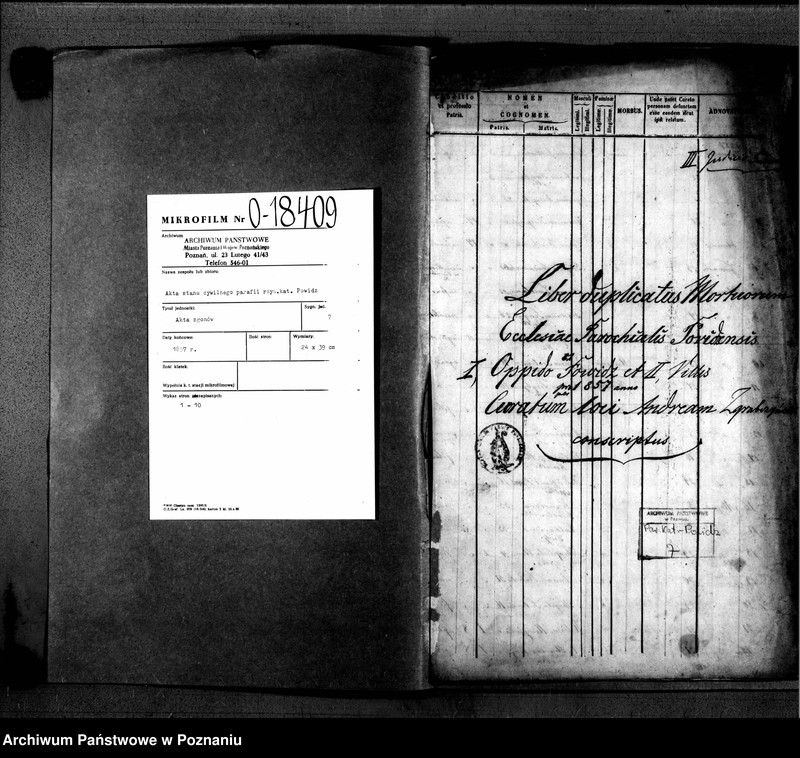 MIKROFILM Nr O-18409
Archiwum
ARCHIWUM PAŃSTWOWE
Miasta Poznania i Wojew. Poznańskiego
Poznań, ul. 23 Lutego 41/43
Telefon 546-01
Nazwa zespołu lub zbioru:
Akta stanu cywilnego parafii rzym.kat. Powidz
Tytuł jednostki:
Akta zgonów
Sygn. jed.
7
Daty końcowe:
1857 r.
Ilość stron:
Wymiary:
24 x 39 cm
Ilość klatek:
Wypełnia k. t. stacji mikrofilmowej
Wykaz stron
1 - 10
Conditio
vi professio
Patris.
NOMEN
et
COGNOMEN.
Patris.
Matris.
Masculi
Feminae
Legitimi.
Illegitimi.
Legitimae
Illegitimae
MORBUS.
Unde novit Curatus
personam defunctam
esse eandem
ipsi relatum.
III
Liber duplicatus Mortuorum
Ecclesiae Parochialis Powidzensis
I, Oppido Powidz et II, Villis
pro 1857 anno
per
Curatum loci Andream
conscriptus.
ARCHIWUM PAŃSTWOWE
w Poznaniu
Par. Kat-Powidz
7
Archiwum Państwowe w Poznaniu